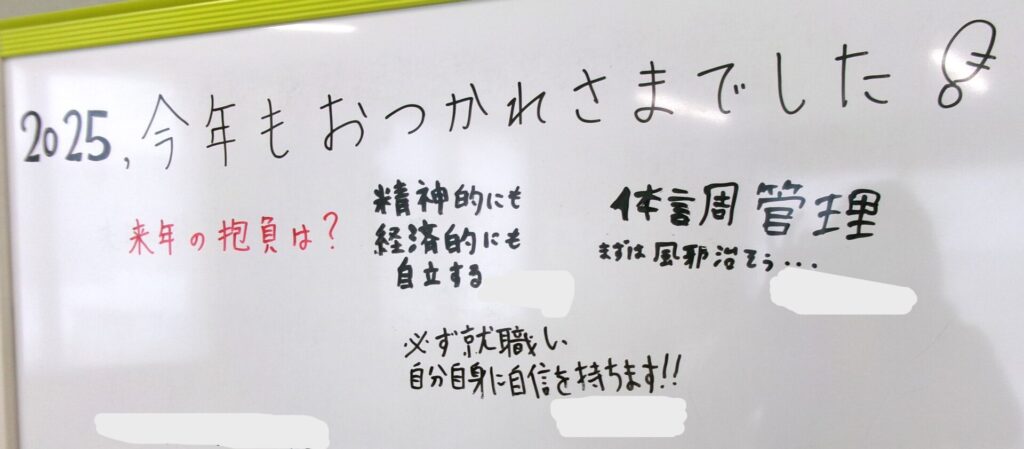 2025,今年もおつかれさまでした!
来年の抱負は?
精神的にも
経済的にも
自立する
体調管理
まずは風邪治そう...
必ず就職し、
自分自身に自信を持ちます!!